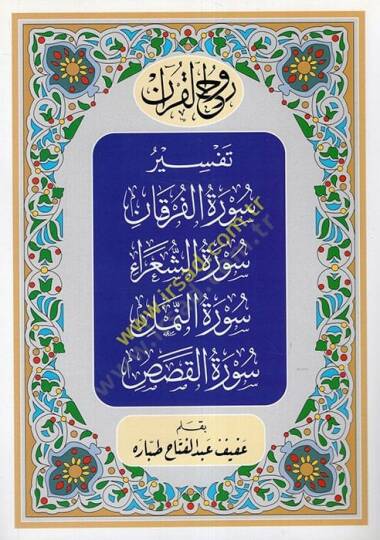 روح القرآن
تفسير
سورة الفرقان
سورة الشعراء
سورة النمل
سورة القصص
بقلم
عفيف عبد الفتاح طبّاره
www.irsad.com.tr